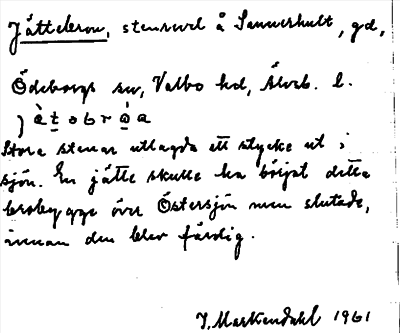 Jättebron, stenrevel å Sannerhult, gd,
Ödeborgs sn, Valbo hd, Älvsb. l.
Stora stenar utlagda ett stycke ut i
sjön. En jätte skulle ha börjat detta
brobygge över Östersjön men slutade,
innan den blev färdig.
J. Markendahl 1961